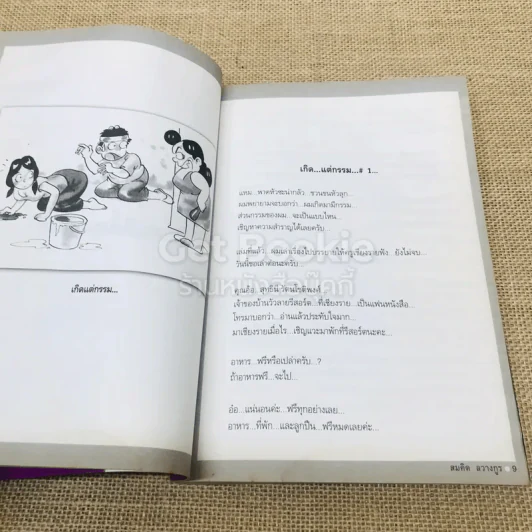 เกิดแต่กรรม...
เกิด...แต่กรรม...# 1...
แหม...พาดหัวซะน่ากลัว ชวนขนหัวลุก...
ผมพยายามจะบอกว่า ผมเกิดมามีกรรม...
ส่วนกรรมของผม จะเป็นแบบไหน...
เชิญหาความสำราญได้เลยครับ...
ผมนำเรื่องไปบรรยายให้ครูเรียงรายฟัง ยังไม่จบ...
วันนี้ขอเล่าต่อนะครับ...
คุณอ้อ
เจ้าของบ้านวัวลายรีสอร์ต...ที่เชียงราย...เป็นแฟนหนังสือ...
โทรมาบอกว่า...อ่านแล้วประทับใจมาก...
มาเชียงรายเมื่อไร...เชิญแวะมาพักที่รีสอร์ตนะคะ...
อาหาร...ฟรีหรือเปล่าครับ...?
ถ้าอาหารฟรี...จะไป...
อ๋อ...แน่นอนค่ะ...ฟรีทุกอย่างเลย...
อาหาร...ที่พัก...และลูกปืน...ฟรีหมดเลยค่ะ...
สมคิด ลวางกูร 9
Get Bookie
ร้านหนังสือบุ๊คกี้